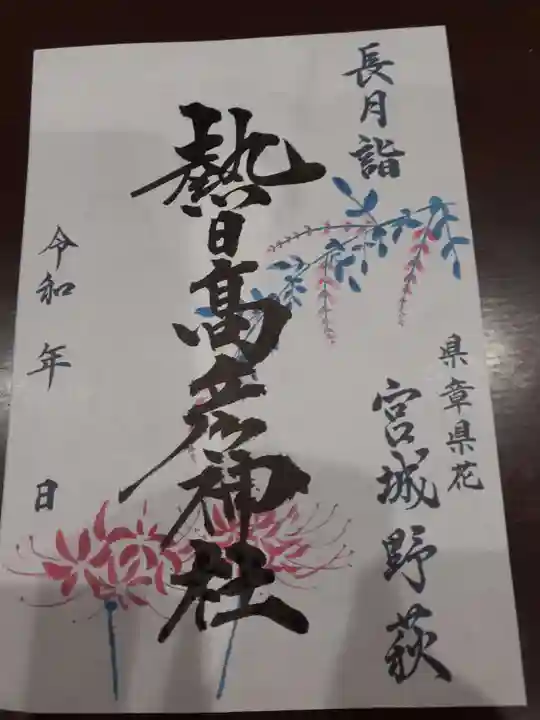 長月詣
県章県花
宮城野萩
熱日高彦神社
令和 年
日